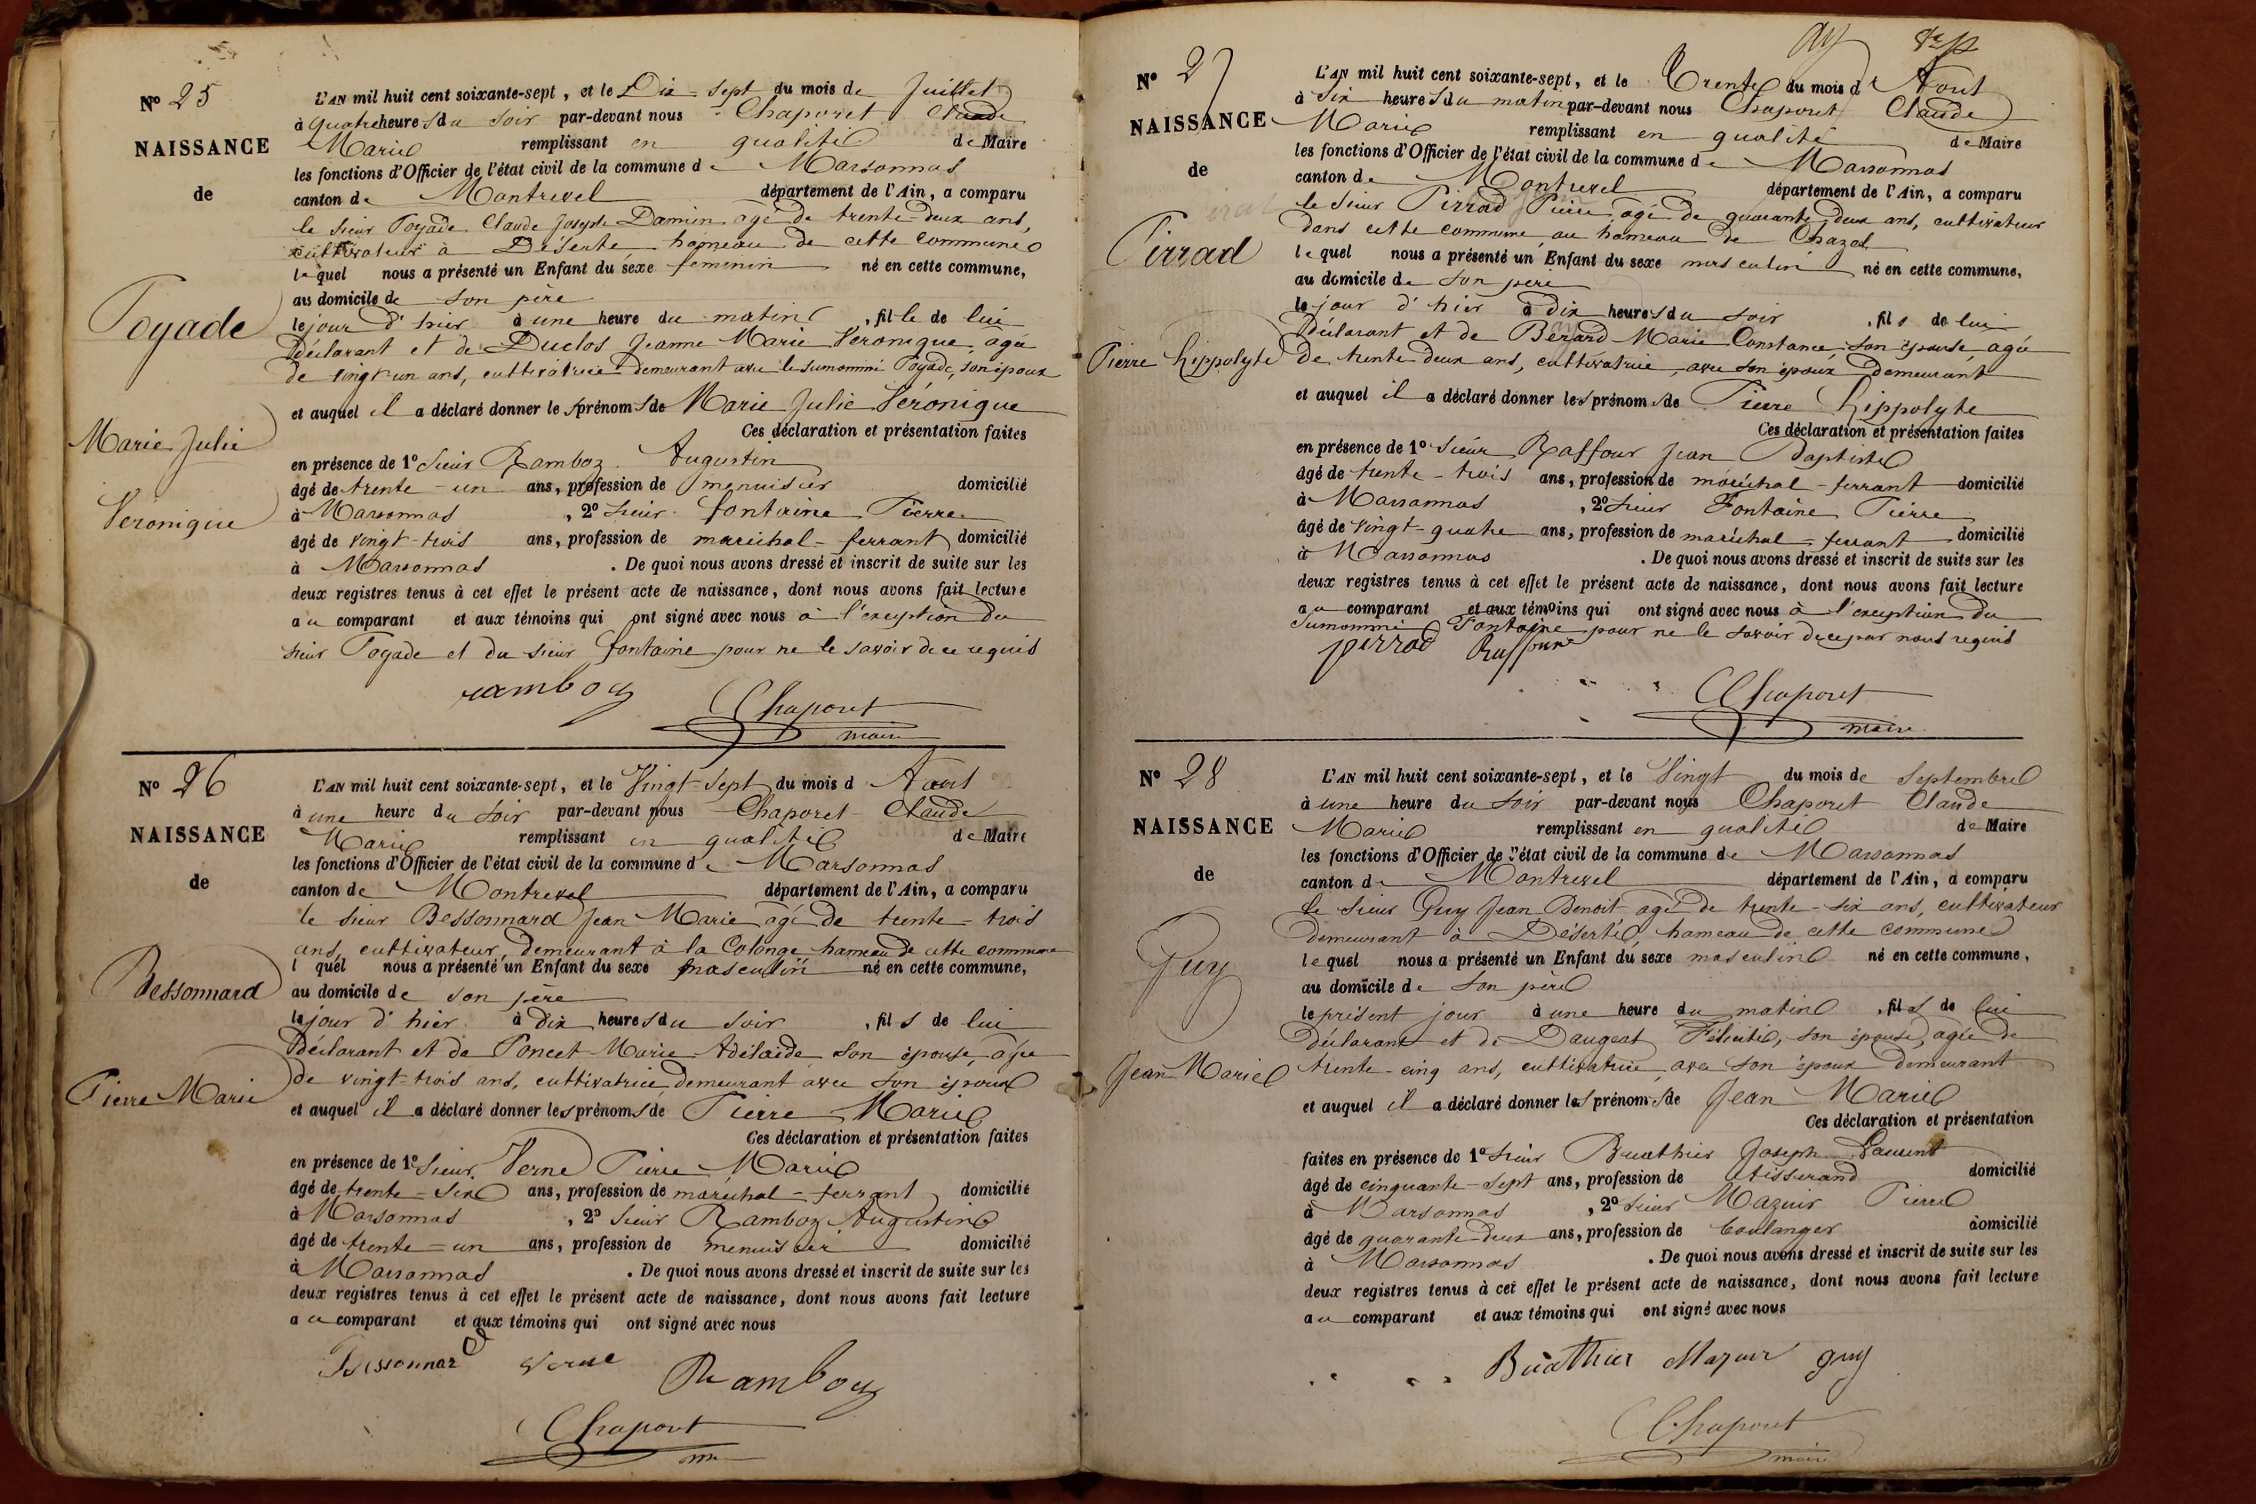 N° 25
NAISSANCE
de
Poyade
Marie Julie
Véronique
L'AN mil huit cent soixante-sept, et le Dix-sept du mois de Juillet
à quatre heures du soir par-devant nous Chaporet Claude
Marie remplissant en qualité de Maire
les fonctions d'Officier de l'état civil de la commune de Marsonnas
canton de Montrevel département de l'Ain, a comparu
le sieur Poyade Claude Joseph Damien agé de trente-deux ans,
cultivateur à Déserte hameau de cette commune
lequel nous a présenté un Enfant du sexe féminin né en cette commune,
au domicile de son père
le jour d'hier à une heure du matin, fille de lui
déclarant et de Duclos Jeanne Marie Véronique, agée
de vingt-un ans, cultivatrice demeurant avec le surnommé Poyade, son époux
et auquel il a déclaré donner les prénoms de Marie Julie Véronique
Ces déclaration et présentation faites
en présence de 1° sieur Ramboz Augustin
âgé de trente-un ans, profession de menuisier domicilié
à Marsonnas, 2° sieur fontaine Pierre
âgé de vingt-trois ans, profession de maréchal-ferrant domicilié
à Marsonnas. De quoi nous avons dressé et inscrit de suite sur les
deux registres tenus à cet effet le présent acte de naissance, dont nous avons fait lecture
au comparant et aux témoins qui ont signé avec nous à l'exception du
sieur Poyade et du sieur fontaine pour ne le savoir de ce requis
ramboz Chaporet
maire
N° 26
NAISSANCE
de
Bessonnard
Pierre Marie
L'AN mil huit cent soixante-sept, et le Vingt-sept du mois d Aout
à une heure du soir par-devant nous Chaporet Claude
Marie remplissant en qualité de Maire
les fonctions d'Officier de l'état civil de la commune de Marsonnas
canton de Montrevel département de l'Ain, a comparu
le sieur Bessonnard Jean Marie agé de trente-trois
ans, cultivateur, demeurant à la Colonge hameau de cette commune
l quel nous a présenté un Enfant du sexe masculin né en cette commune,
au domicile de son père
le jour d'hier à dix heures du soir, fils de lui
déclarant et de Poncet Marie Adélaïde son épouse, agée
de vingt-trois ans, cultivatrice demeurant avec son époux
et auquel il a déclaré donner les prénoms de Pierre Marie
Ces déclaration et présentation faites
en présence de 1° sieur Verne Pierre Marie
âgé de trente-six ans, profession de maréchal-ferrant domicilié
à Marsonnas, 2° sieur Ramboz Augustin
âgé de trente-un ans, profession de menuisier domicilié
à Marsonnas. De quoi nous avons dressé et inscrit de suite sur les
deux registres tenus à cet effet le présent acte de naissance, dont nous avons fait lecture
au comparant et aux témoins qui ont signé avec nous
Bessonnard Verne Ramboz
Chaporet
N° 27
NAISSANCE
de
Pirrad
Pierre hippolyte
L'AN mil huit cent soixante-sept, et le Trente du mois d'Aout
à six heures du matin par-devant nous Chaporet Claude
Marie remplissant en qualité de Maire
les fonctions d'Officier de l'état civil de la commune de Marsonnas
canton de Montrevel département de l'Ain, a comparu
le sieur Pirrad Pierre, agé de quarante-deux ans, cultivateur
dans cette commune, au hameau de Chazal
lequel nous a présenté un Enfant du sexe masculin né en cette commune,
au domicile de son père
le jour d'hier à dix heures du soir, fils de lui
déclarant et de Bérard Marie Constance son épouse, agée
de trente-deux ans, cultivatrice, avec son époux demeurant
et auquel il a déclaré donner les prénoms de Pierre hippolyte
Ces déclaration et présentation faites
en présence de 1° sieur Raffour Jean Baptiste
âgé de trente-trois ans, profession de maréchal-ferrant domicilié
à Marsonnas, 2° sieur Fontaine Pierre
âgé de vingt-quatre ans, profession de maréchal-ferrant domicilié
à Marsonnas. De quoi nous avons dressé et inscrit de suite sur les
deux registres tenus à cet effet le présent acte de naissance, dont nous avons fait lecture
au comparant et aux témoins qui ont signé avec nous à l'exception du
surnommé Fontaine pour ne le savoir de ce par nous requis
perrad Raffour
Chaporet
maire
N° 28
NAISSANCE
de
Guy
Jean Marie
L'AN mil huit cent soixante-sept, et le Vingt du mois de Septembre
à une heure du soir par-devant nous Chaporet Claude
Marie remplissant en qualité de Maire
les fonctions d'Officier de l'état civil de la commune de Marsonnas
canton de Montrevel département de l'Ain, a comparu
le sieur Guy Jean Benoit agé de trente-six ans, cultivateur
demeurant à Déserte, hameau de cette commune
lequel nous a présenté un Enfant du sexe masculin né en cette commune,
au domicile de son père
le présent jour à une heure du matin, fils de lui
déclarant et de Daugeat Félicité, son épouse, agée de
trente-cinq ans, cultivatrice, avec son époux demeurant
et auquel il a déclaré donner les prénoms de Jean Marie
Ces déclaration et présentation
faites en présence de 1° sieur Buathier Joseph Laurent
âgé de cinquante-sept ans, profession de tisserand domicilié
à Marsonnas, 2° sieur Mazuir Pierre
âgé de quarante-deux ans, profession de boulanger domicilié
à Marsonnas. De quoi nous avons dressé et inscrit de suite sur les
deux registres tenus à cet effet le présent acte de naissance, dont nous avons fait lecture
au comparant et aux témoins qui ont signé avec nous
Buathier Mazuir guy
Chaporet
maire